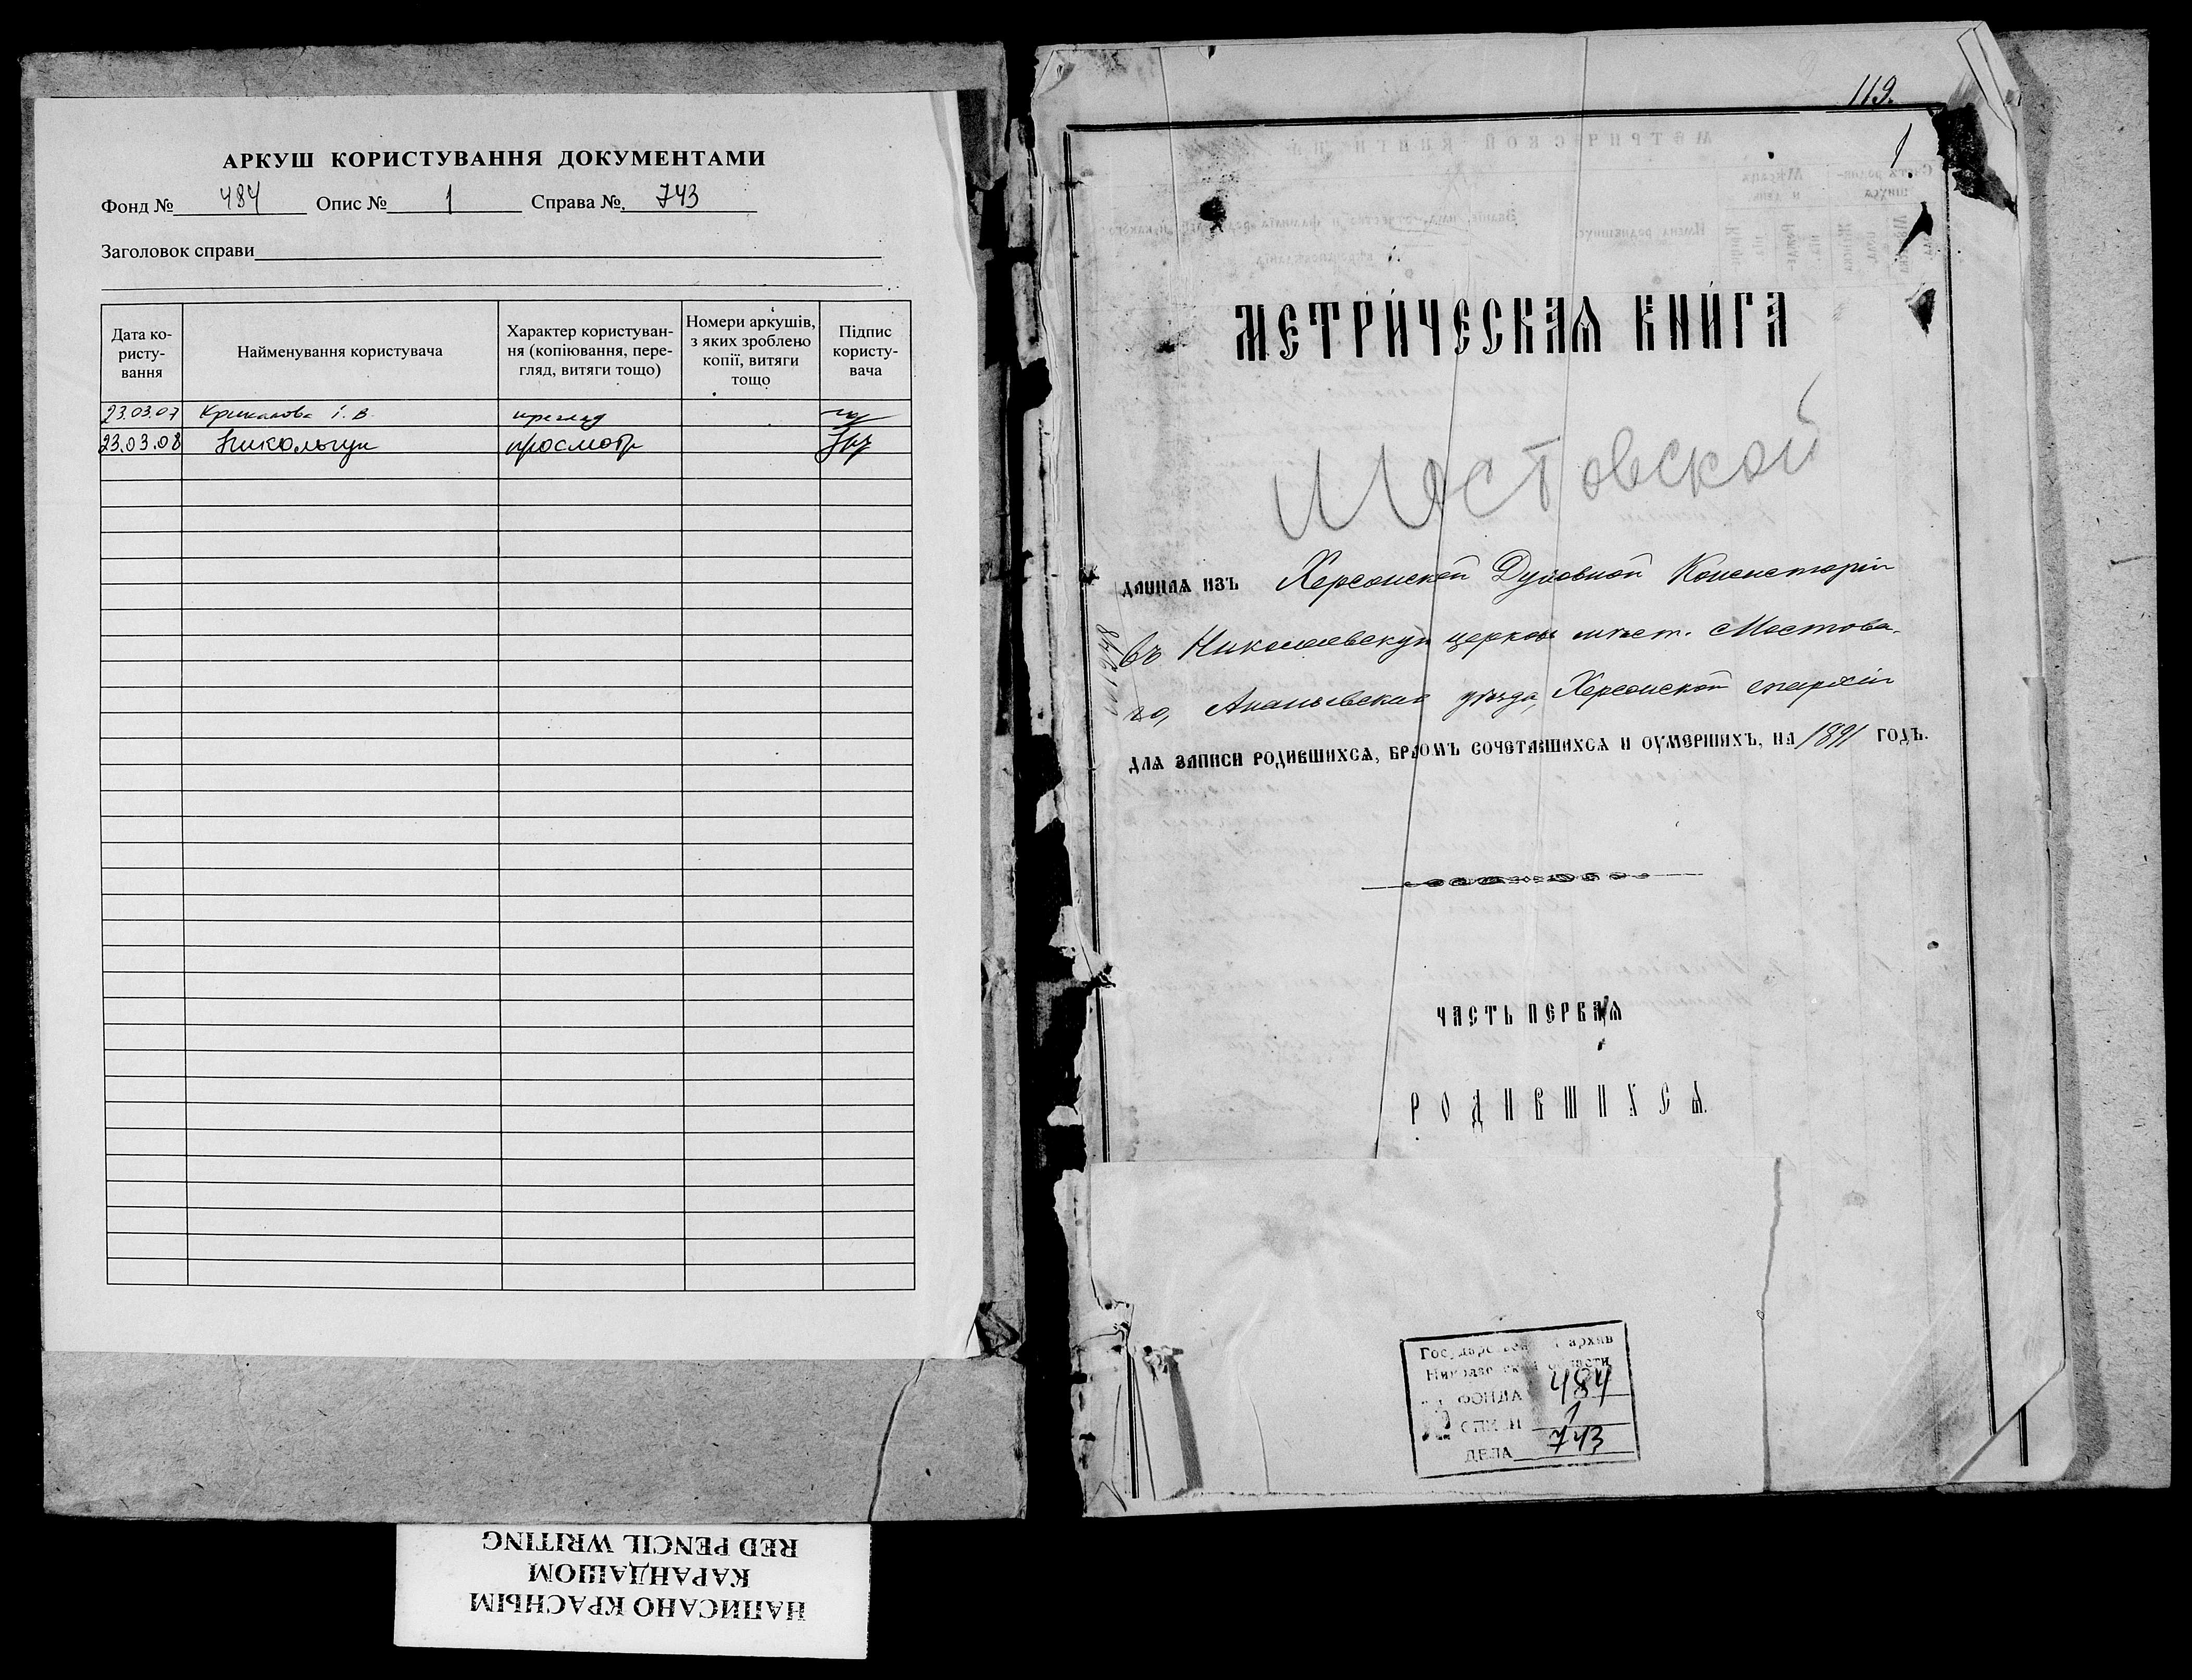 АРКУШ КОРИСТУВАННЯ ДОКУМЕНТАМИ
Фонд № 484 Опис № 1 Справа № 743
Заголовок справи
Дата ко-
ристу-
вання
Найменування користувача
Характер користуван-
ня (копіювання, пере-
гляд, витяги тощо)
Номери аркушів,
з яких зроблено
копії, витяги
тощо
Підпис
користу-
вача
23.03.07 І. В.
23.03.08 просмотр
НАПИСАНО КРАСНЫМ
КАРАНДАШОМ
RED PENCIL WRITING
119.
1
МЕТРИЧЕСКАѦ КНИГА
Мостовской
даннаѧ изъ Херсонской Духовной Консисторіи
въ Николаевскую церковь мѣст. Мостова-
го, Ананьевскаго уѣзда, Херсонской епархіи
длѧ записи родившихсѧ, бракомъ сочетавшихсѧ и оумершихъ, на 1891 годъ.
ЧАСТЬ ПЕРВАѦ
РОДИВШИХСѦ.
Государственный архив
Николаевской области
ФОНДА 484
ОПИСИ 1
ДЕЛА 743